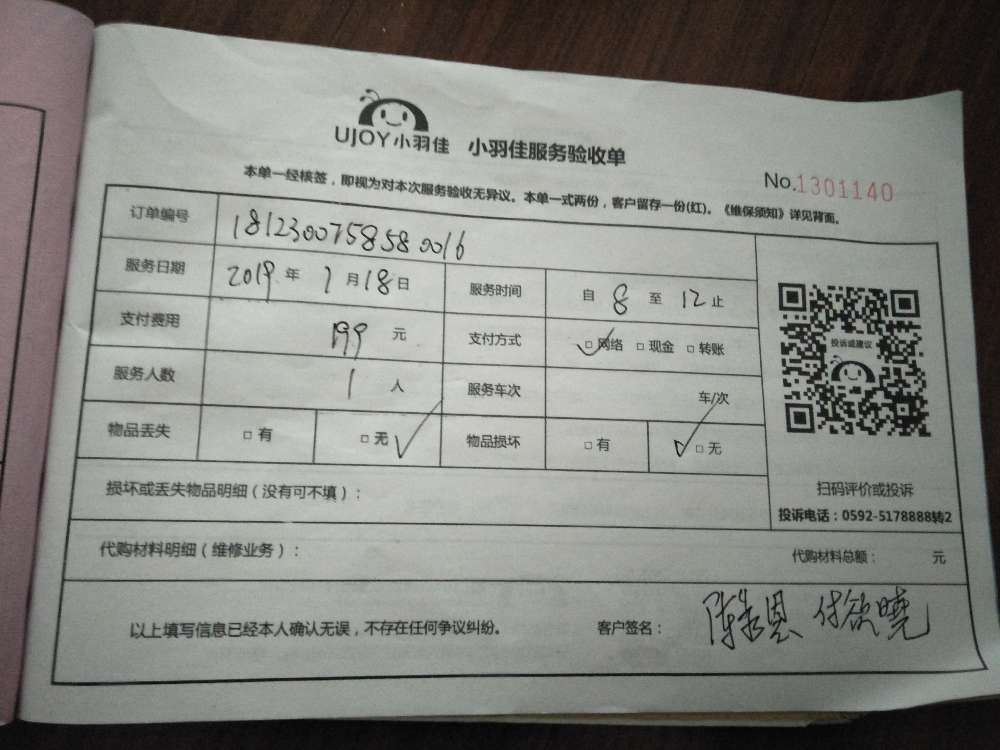 UJOY小羽佳 小羽佳服务验收单
No.1301140
本单一经核签，即视为对本次服务验收无异议。本单一式两份，客户留存一份(红)。《维保须知》详见背面。
订单编号 1812300758580016
服务日期 2019年1月18日 服务时间 自8至12止
支付费用 199元 支付方式 □网络 □现金 □转账
服务人数 1人 服务车次 车/次
物品丢失 □有 □无 物品损坏 □有 □无
投诉或建议
扫码评价或投诉
投诉电话：0592-5178888转2
损坏或丢失物品明细（没有可不填）：
代购材料明细（维修业务）： 代购材料总额： 元
以上填写信息已经本人确认无误，不存在任何争议纠纷。 客户签名： 陈 恩 付欲晓